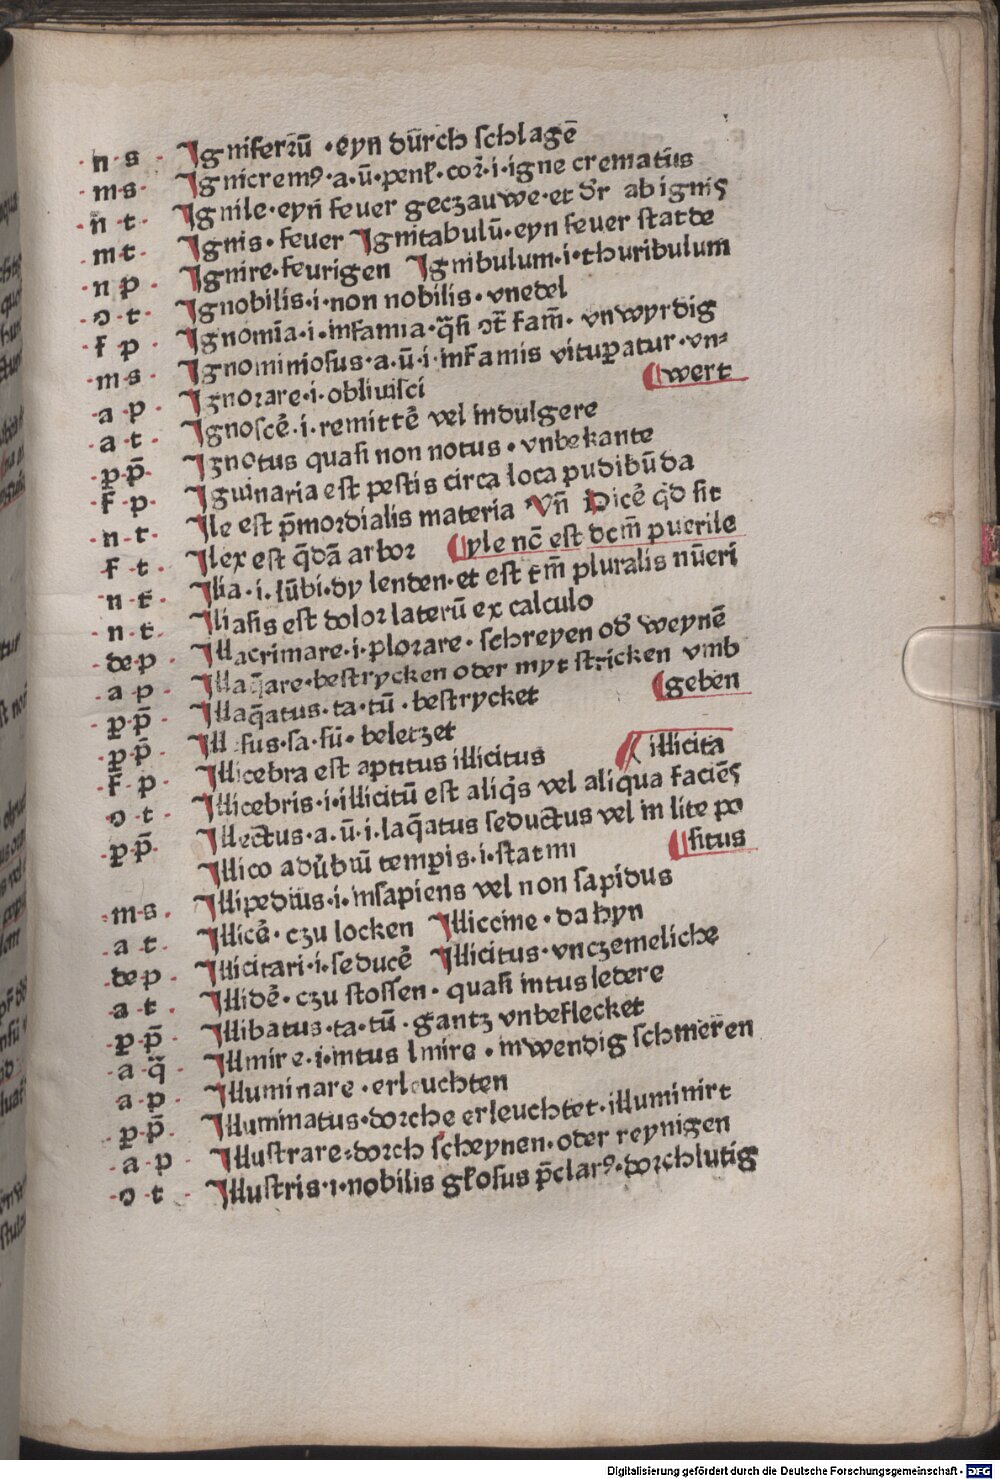 ·n·s· Igniferrū ·eyn dürch schlagē
·m·s· Ignicremꝰ·a·ū·penl̄·cor̄·i·igne crematus
·n̄·t· Ignile·eyn feuer geczauwe·et dr̄ ab igniς
·m·t· Ignis·feuer Ignitabulū·eyn feuer statde
·n·p· Ignire·feurigen Ignibulum·i·thuribulum
·ɔ·t· Ignobilis·i·non nobilis·vnedel
·f·p· Ignomīa·i·infamia·q̄si ɔt̄ fam̄·vnwyrdig
·m·s· Ignominiosus·a·ū·i·infamis vituꝑatur·vn⸗
·a·p· Ignorare·i·obliuisci ¶wert
·a·t· Ignoscē·i·remittē vel indulgere
·p·p̄· Ignotus quasi non notus·vnbekante
·f·p· Iguinaria est pestis circa loca pudibūda
·n·t· Ile est p̄mordialis materia Vn̄ Dicē qd̄ sit
·f·t· Ilex est q̄dā arbor ¶yle nō est dcm̄ puerile
·n·t̄· Ilia·i·lūbi·dy lenden·et est tm̄ pluralis nūeri
·n·t· Iliasis est dolor laterū ex calculo
·de·p· Illacrimare·i·plorare·schreyen od̄ weynē
·a·p· Illaq̄are·bestrycken oder myt stricken vmb
·p·p̄· Illaq̄atus·ta·tū·bestrycket ¶geben
·p·p̄· Ill sus·sa·sū·beletzet
·f·p· Illicebra est aptitus illicitus ¶illicita
·ɔ·t· Illicebris·i·illicitū est aliq̄s vel aliqua faciēς
·p·p̄· Illectus·a·ū·i·laq̄atus seductus vel in lite po
Illico adūbiū temꝑis·i·statim ¶situs
·m·s· Illipedius·i·insapiens vel non sapidus
·a·t· Illicē·czu locken Illiccine·da hyn
·de·p· Illicitari·i·seducē Illicitus·vnczemeliche
·a·t· Illidē·czu stossen·quasi intus ledere
·p·p̄· Illibatus·ta·tū·gantz vnbeflecket
·a·q̄· Illinire·i·intus linire·inwendig schmeren
·a·p· Illuminare·erleuchten
·p·p̄· Illuminatus·dorche erleuchtet·illuminirt
·a·p· Illustrare·dorch scheynen·oder reynigen
·ɔ·t· Illustris·i·nobilis gl̄osus p̄clarꝰ·dorchlutig
Digitalisierung gefördert durch die Deutsche Forschungsgemeinschaft - DFG